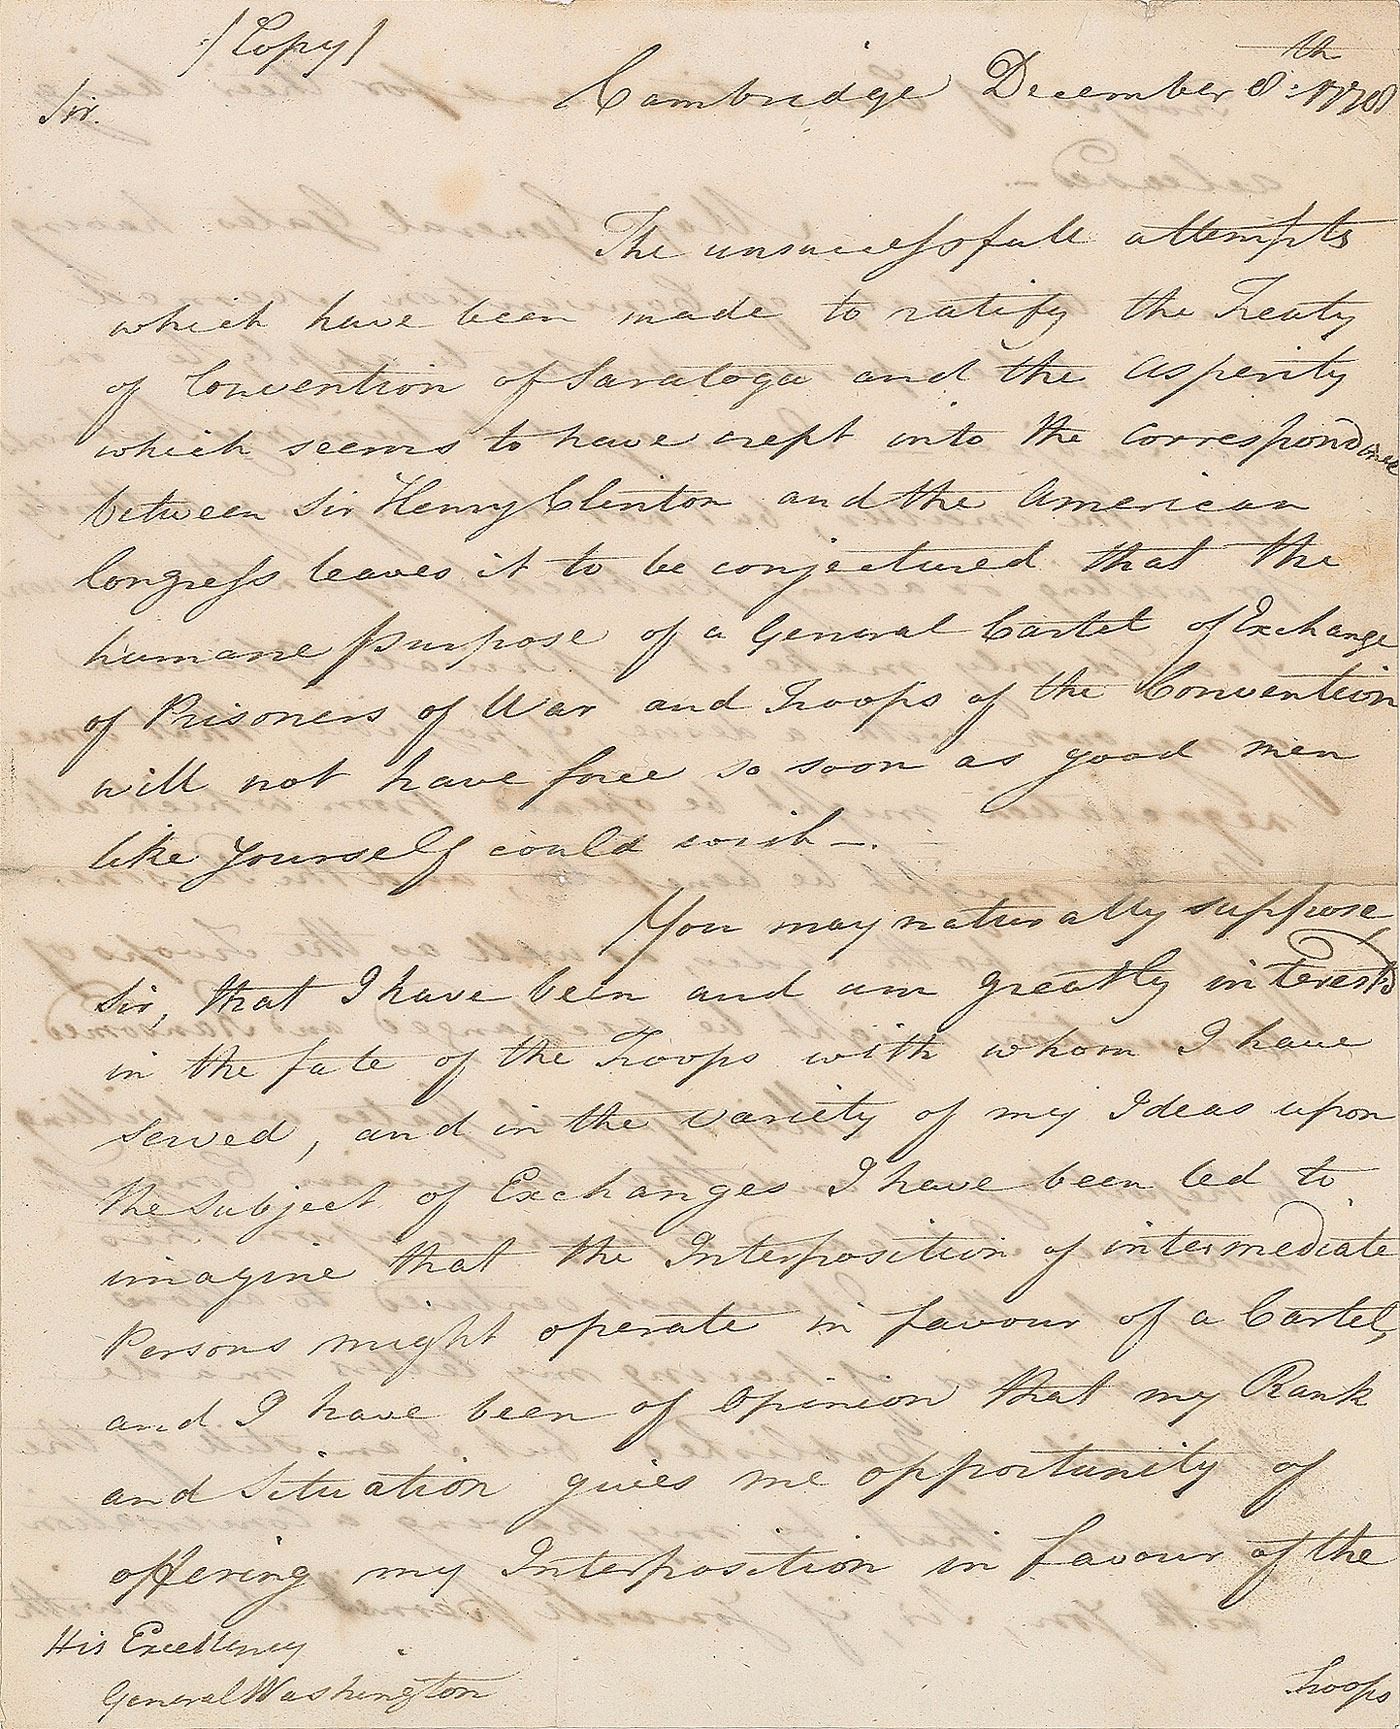 /Copy/
Cambridge December 8th: 1778
Sir.
The unsuccessfull attempts
which have been made to ratify the Treaty
of Convention of Saratoga and the asperity
which seems to have crept into the correspondence
between Sir Henry Clinton and the American
Congress leaves it to be conjectured that the
humane purpose of a General Cartel of Exchange
of Prisoners of War and Troops of the Convention
will not have force so soon as good men
like yourself could wish —.
You may naturally suppose,
Sir, that I have been and am greatly interested
in the fate of the Troops with whom I have
served, and in the variety of my Ideas upon
the Subject of Exchanges I have been led to
imagine that the Interposition of intermediate
Persons might operate in favour of a Cartel,
and I have been of Opinion that my Rank
and Situation gives me opportunity of
offering my Interposition in favour of the
His Excellency
General Washington
Troops